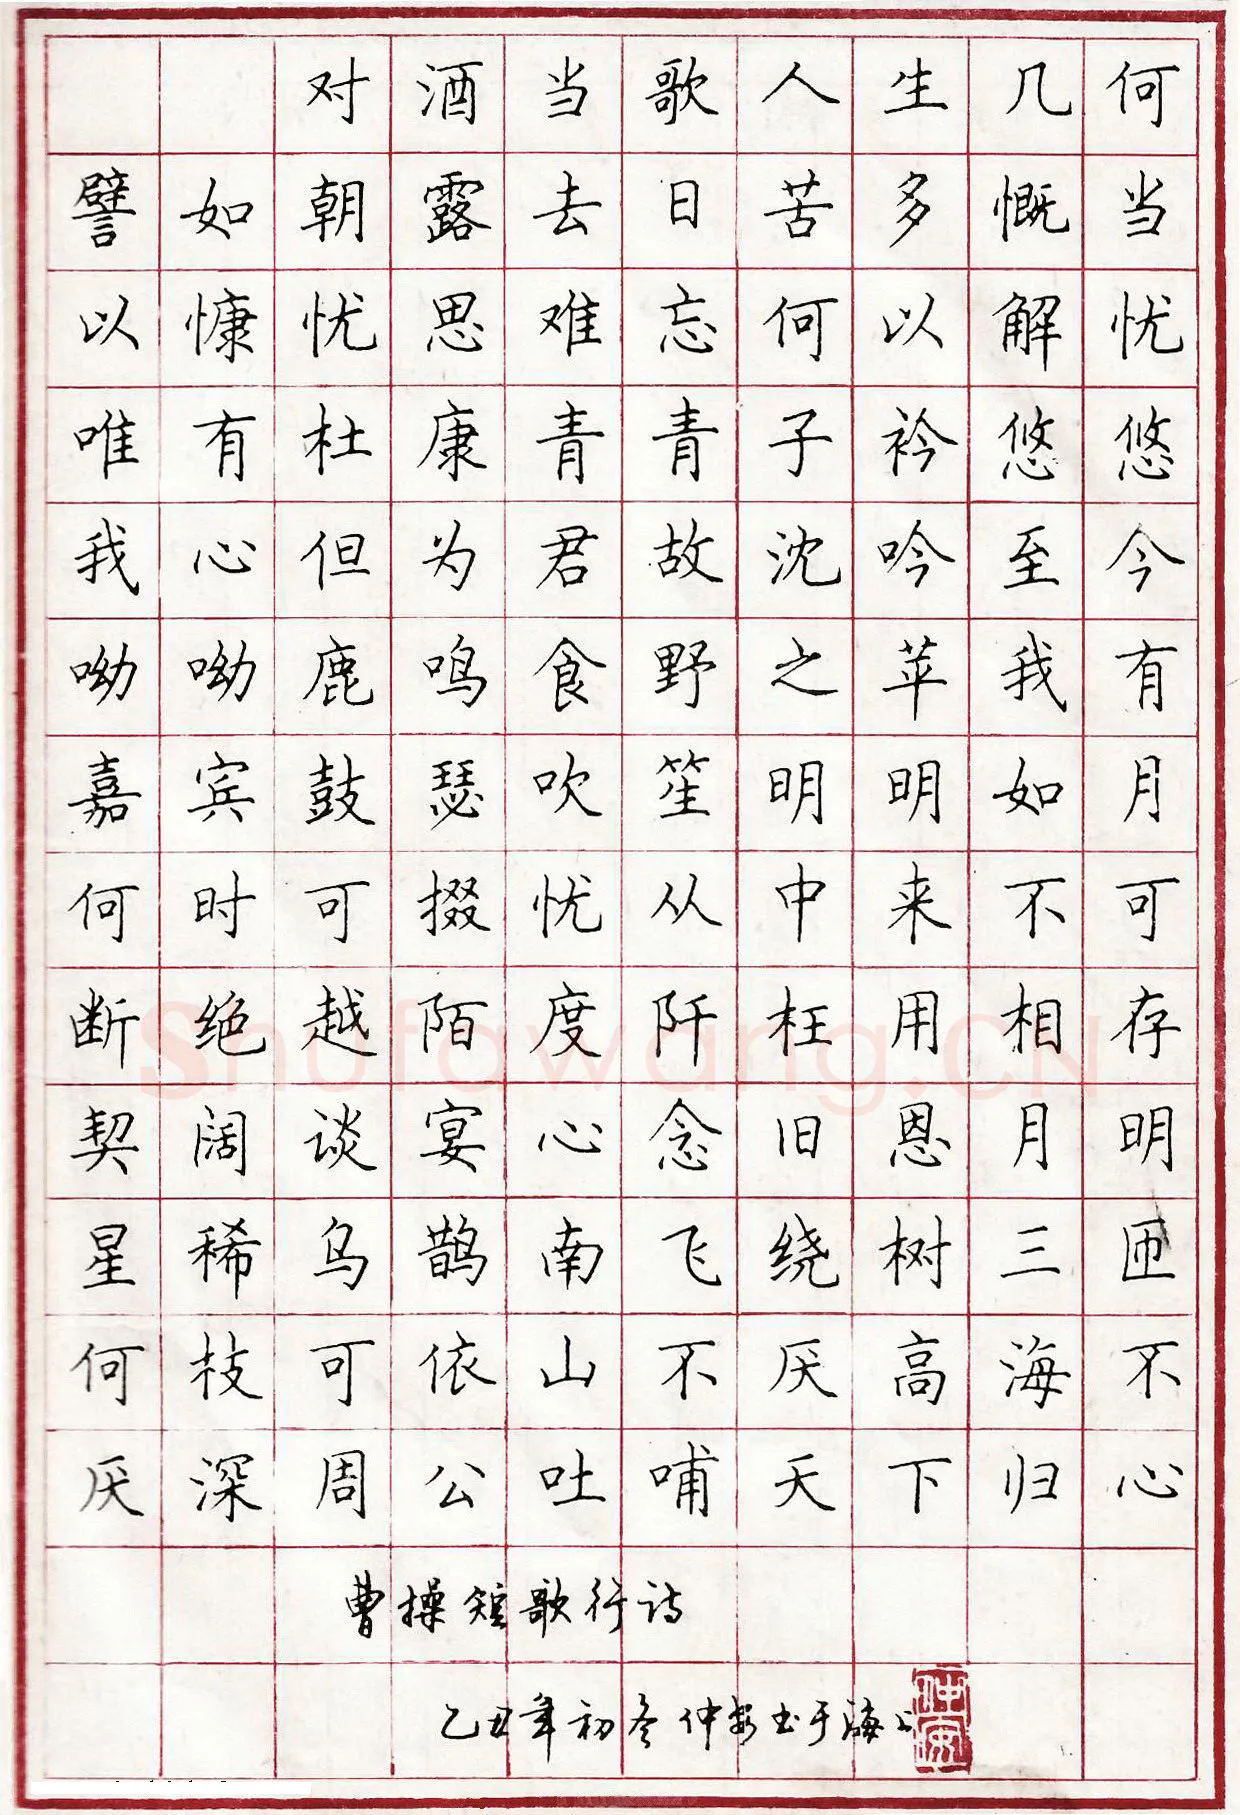 对酒当歌人生几何
譬如朝露去日苦多慨当
以慷忧思难忘何以解忧
唯有杜康青青子衿悠悠
我心但为君故沈吟至今
呦呦鹿鸣食野之苹我有
嘉宾鼓瑟吹笙明明如月
何时可掇忧从中来不可
断绝越陌度阡枉用相存
契阔谈宴心念旧恩月明
星稀乌鹊南飞绕树三匝
何枝可依山不厌高海不
厌深周公吐哺天下归心
曹操短歌行诗
乙丑年初冬仲安书于海上
仲安
Shufawang.CN